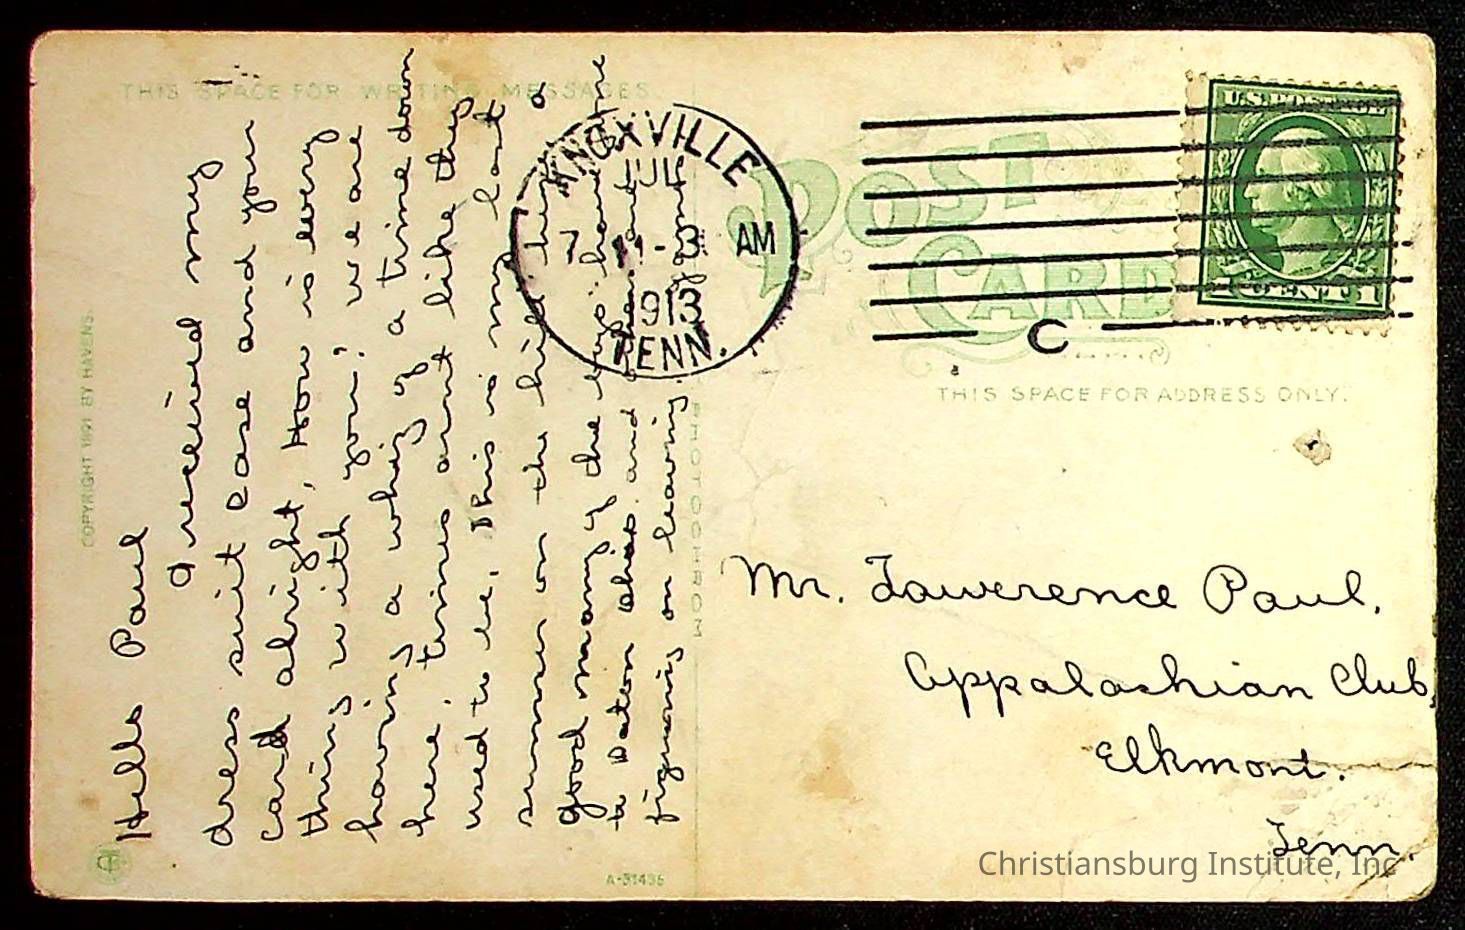 THIS SPACE FOR WRITING MESSAGES.
Hello Paul
I received my
dress suit case and your
card alright, How is every
thing with you? we are
having a whiz of a time down
here, times aint like they
used to be. This is my last
summer on the hill. a
good many of the boys have
to Daton Ohio. and
figuring on leaving
COPYRIGHT 1901 BY HAVENS.
PHOTOCHROM
A-31435
KNOXVILLE
JUL
7 11-3 AM
1913
TENN.
C
U.S. POSTAGE
1 CENT 1
POST CARD
THIS SPACE FOR ADDRESS ONLY.
Mr. Lawerence Paul,
Appalachian Club,
Elkmont.
Tenn.
Christiansburg Institute, Inc